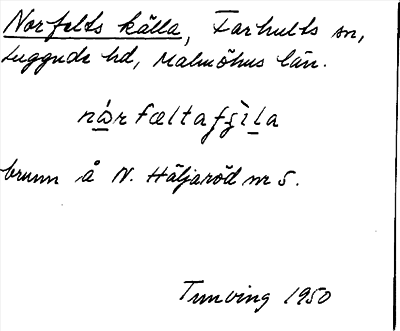 Norfelts källa, Farhults sn,
Luggude hd, Malmöhus län.
nǻ̱rfæltafʂìḻa
brunn å N. Häljaröd nr 5.
Tunving 1950